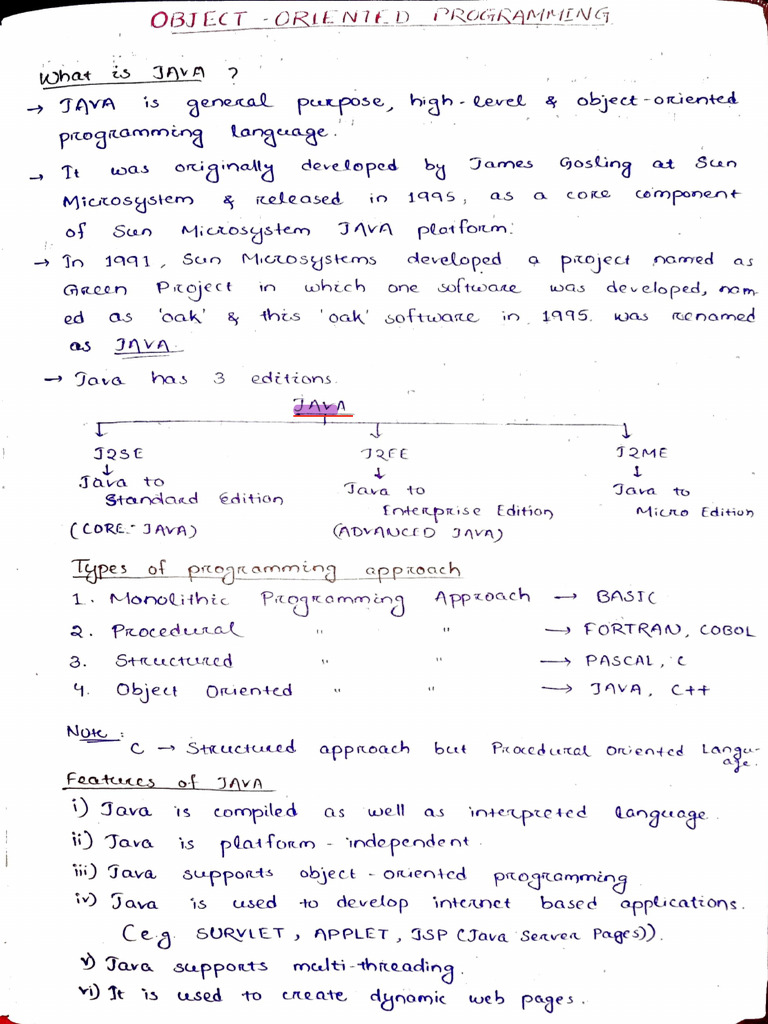 OBJECT-ORIENTED PROGRAMMING
What is JAVA ?
→ JAVA is general purpose, high-level & object-oriented
programming language.
→ It was originally developed by James Gosling at Sun
Microsystem & released in 1995, as a core component
of Sun Microsystem JAVA platform.
→ In 1991, Sun Microsystems developed a project named as
Green Project in which one software was developed, nam-
ed as 'oak' & this 'oak' software in 1995. was renamed
as JAVA.
→ Java has 3 editions.
JAVA
J2SE J2EE J2ME
Java to Java to Java to
Standard Edition Enterprise Edition Micro Edition
(CORE-JAVA) (ADVANCED JAVA)
Types of programming approach
1. Monolithic Programming Approach → BASIC
2. Procedural " " → FORTRAN, COBOL
3. Structured " " → PASCAL, C
4. Object Oriented " " → JAVA, C++
Note:
C → Structured approach but Procedural Oriented Langu-
age.
Features of JAVA
i) Java is compiled as well as interpreted language.
ii) Java is platform-independent.
iii) Java supports object-oriented programming
iv) Java is used to develop internet based applications.
(e.g. SURVLET, APPLET, JSP (Java Server Pages)).
v) Java supports multi-threading.
vi) It is used to create dynamic web pages.